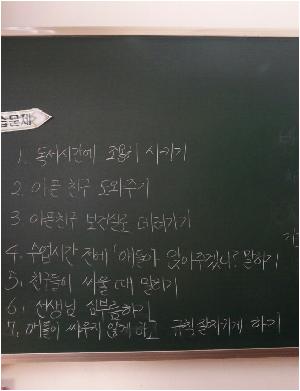 습문제
1. 독서시간에 조용히 시키기
2. 아픈 친구 도와주기
3. 아픈친구 보건실로 데려가기
4. 수업시간 전에 "애들아 앉아주겠니? 말하기
5. 친구들이 싸울 때 말리기
6. 선생님 심부름하기
7. 애들이 싸우지 않게 하고 규칙 잘지키게 하기